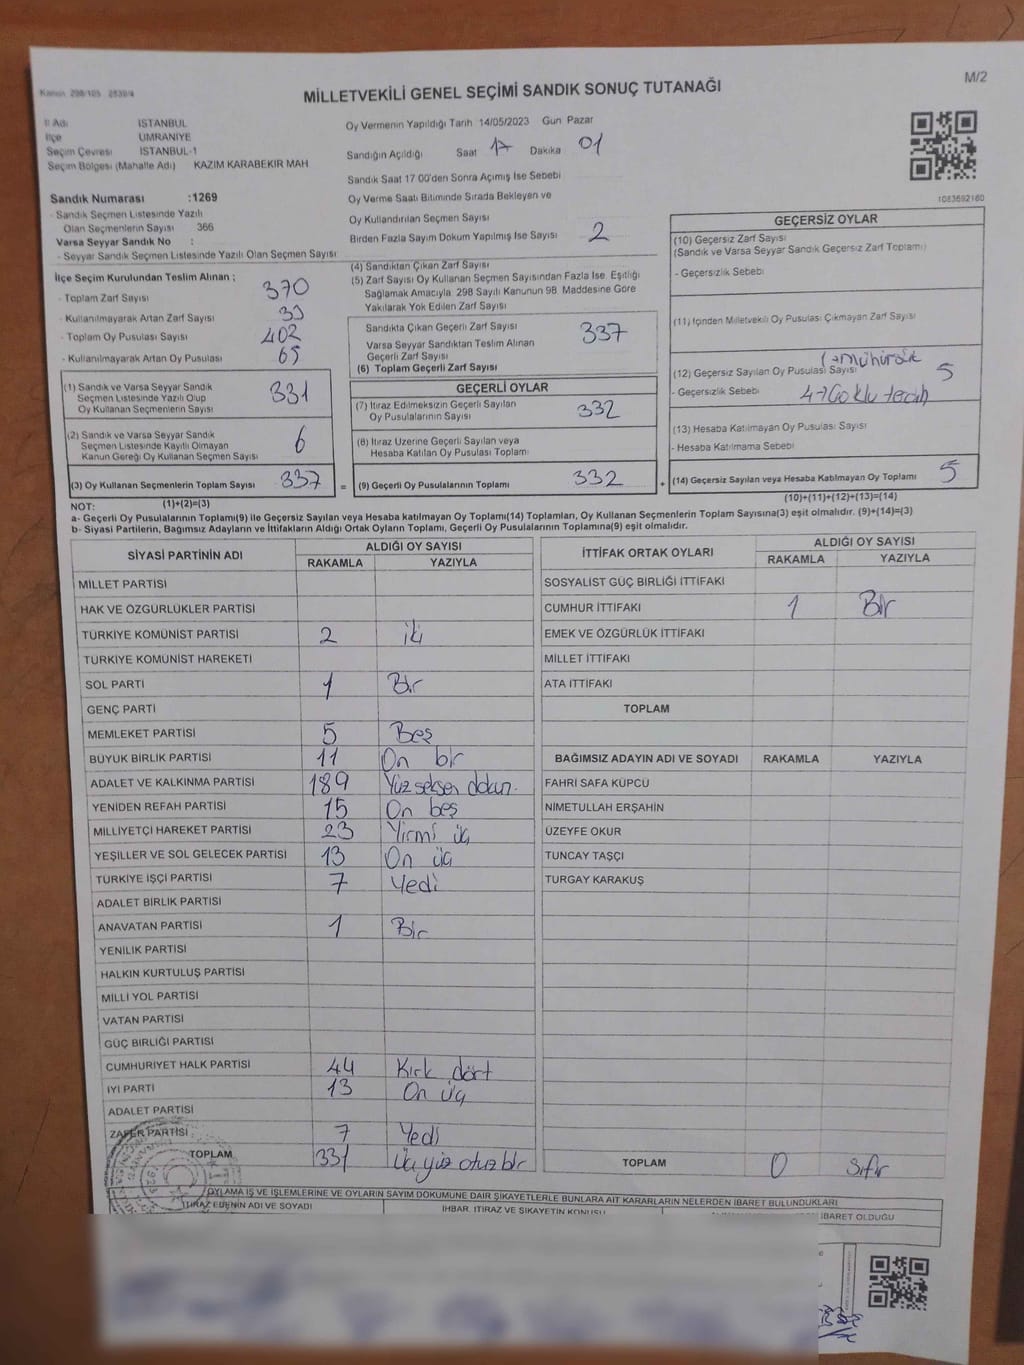 M/2
Kanun 298/105 2839/4
MİLLETVEKİLİ GENEL SEÇİMİ SANDIK SONUÇ TUTANAĞI
İl Adı İSTANBUL
İlçe ÜMRANİYE
Seçim Çevresi İSTANBUL-1
Seçim Bölgesi (Mahalle Adı) KAZIM KARABEKİR MAH
Oy Vermenin Yapıldığı Tarih 14/05/2023 Gün Pazar
Sandığın Açıldığı Saat 17 Dakika 01
Sandık Saat 17 00'den Sonra Açımış İse Sebebi
Oy Verme Saati Bitiminde Sırada Bekleyen ve
Oy Kullandırılan Seçmen Sayısı
Birden Fazla Sayım Döküm Yapılmış İse Sayısı 2
1083692160
Sandık Numarası :1269
- Sandık Seçmen Listesinde Yazılı
Olan Seçmenlerin Sayısı 366
Varsa Seyyar Sandık No :
- Seyyar Sandık Seçmen Listesinde Yazılı Olan Seçmen Sayısı
İlçe Seçim Kurulundan Teslim Alınan ;
- Toplam Zarf Sayısı 370
- Kullanılmayarak Artan Zarf Sayısı 33
- Toplam Oy Pusulası Sayısı 402
- Kullanılmayarak Artan Oy Pusulası 65
(1) Sandık ve Varsa Seyyar Sandık
Seçmen Listesinde Yazılı Olup
Oy Kullanan Seçmenlerin Sayısı 331
(2) Sandık ve Varsa Seyyar Sandık
Seçmen Listesinde Kayıtlı Olmayan
Kanun Gereği Oy Kullanan Seçmen Sayısı 6
(3) Oy Kullanan Seçmenlerin Toplam Sayısı 337
(4) Sandıktan Çıkan Zarf Sayısı
(5) Zarf Sayısı Oy Kullanan Seçmen Sayısından Fazla İse, Eşitliği
Sağlamak Amacıyla 298 Sayılı Kanunun 98 Maddesine Göre
Yakılarak Yok Edilen Zarf Sayısı
Sandıkta Çıkan Geçerli Zarf Sayısı 337
Varsa Seyyar Sandıktan Teslim Alınan
Geçerli Zarf Sayısı
(6) Toplam Geçerli Zarf Sayısı
GEÇERLİ OYLAR
(7) İtiraz Edilmeksizin Geçerli Sayılan
Oy Pusulalarının Sayısı 332
(8) İtiraz Üzerine Geçerli Sayılan veya
Hesaba Katılan Oy Pusulası Toplamı
= (9) Geçerli Oy Pusulalarının Toplamı 332
GEÇERSİZ OYLAR
(10) Geçersiz Zarf Sayısı
(Sandık ve Varsa Seyyar Sandık Geçersiz Zarf Toplamı)
- Geçersizlik Sebebi
(11) İçinden Milletvekili Oy Pusulası Çıkmayan Zarf Sayısı
1→Mühürsüz
(12) Geçersiz Sayılan Oy Pusulası Sayısı 5
- Geçersizlik Sebebi 4→Çoklu tercih
(13) Hesaba Katılmayan Oy Pusulası Sayısı
- Hesaba Katılmama Sebebi
+ (14) Geçersiz Sayılan veya Hesaba Katılmayan Oy Toplamı 5
NOT: (1)+(2)=(3)
(10)+(11)+(12)+(13)=(14)
a- Geçerli Oy Pusulalarının Toplamı(9) ile Geçersiz Sayılan veya Hesaba katılmayan Oy Toplamı(14) Toplamları, Oy Kullanan Seçmenlerin Toplam Sayısına(3) eşit olmalıdır. (9)+(14)=(3)
b- Siyasi Partilerin, Bağımsız Adayların ve İttifakların Aldığı Ortak Oyların Toplamı, Geçerli Oy Pusulalarının Toplamına(9) eşit olmalıdır.
SİYASİ PARTİNİN ADI ALDIĞI OY SAYISI
RAKAMLA YAZIYLA
MİLLET PARTİSİ
HAK VE ÖZGÜRLÜKLER PARTİSİ
TÜRKİYE KOMÜNİST PARTİSİ 2 iki
TÜRKİYE KOMÜNİST HAREKETİ
SOL PARTİ 1 Bir
GENÇ PARTİ
MEMLEKET PARTİSİ 5 Beş
BÜYÜK BİRLİK PARTİSİ 11 On bir
ADALET VE KALKINMA PARTİSİ 189 Yüz seksen dokuz
YENİDEN REFAH PARTİSİ 15 On beş
MİLLİYETÇİ HAREKET PARTİSİ 23 Yirmi üç
YEŞİLLER VE SOL GELECEK PARTİSİ 13 On üç
TÜRKİYE İŞÇİ PARTİSİ 7 Yedi
ADALET BİRLİK PARTİSİ
ANAVATAN PARTİSİ 1 Bir
YENİLİK PARTİSİ
HALKIN KURTULUŞ PARTİSİ
MİLLİ YOL PARTİSİ
VATAN PARTİSİ
GÜÇ BİRLİĞİ PARTİSİ
CUMHURİYET HALK PARTİSİ 44 Kırk dört
İYİ PARTİ 13 On üç
ADALET PARTİSİ
ZAFER PARTİSİ 7 Yedi
TOPLAM 331 Üçyüz otuz bir
İTTİFAK ORTAK OYLARI ALDIĞI OY SAYISI
RAKAMLA YAZIYLA
SOSYALİST GÜÇ BİRLİĞİ İTTİFAKI
CUMHUR İTTİFAKI 1 Bir
EMEK VE ÖZGÜRLÜK İTTİFAKI
MİLLET İTTİFAKI
ATA İTTİFAKI
TOPLAM
BAĞIMSIZ ADAYIN ADI VE SOYADI RAKAMLA YAZIYLA
FAHRİ SAFA KÜPCÜ
NİMETULLAH ERŞAHİN
ÜZEYFE OKUR
TUNCAY TAŞÇI
TURGAY KARAKUŞ
TOPLAM 0 Sıfır
OYLAMA İŞ VE İŞLEMLERİNE VE OYLARIN SAYIM DÖKÜMÜNE DAİR ŞİKAYETLERLE BUNLARA AİT KARARLARIN NELERDEN İBARET BULUNDUKLARI
İTİRAZ EDENİN ADI VE SOYADI İHBAR, İTİRAZ VE ŞİKAYETİN KONUSU İBARET OLDUĞU